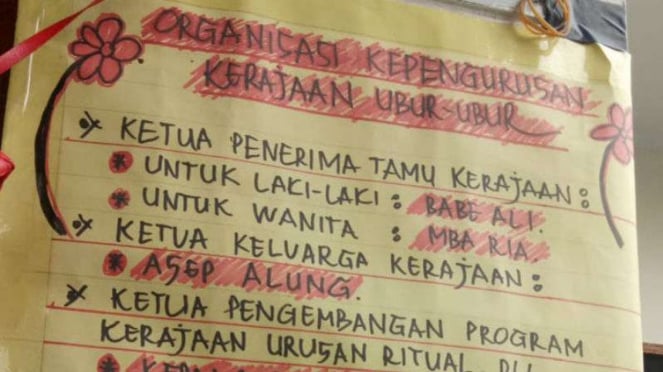 ORGANISASI KEPENGURUSAN
KERAJAAN UBUR-UBUR
KETUA PENERIMA TAMU KERAJAAN :
UNTUK LAKI-LAKI : BABE ALI.
UNTUK WANITA : MBA RIA.
KETUA KELUARGA KERAJAAN :
ASEP ALUNG.
KETUA PENGEMBANGAN PROGRAM
KERAJAAN URUSAN RITUAL